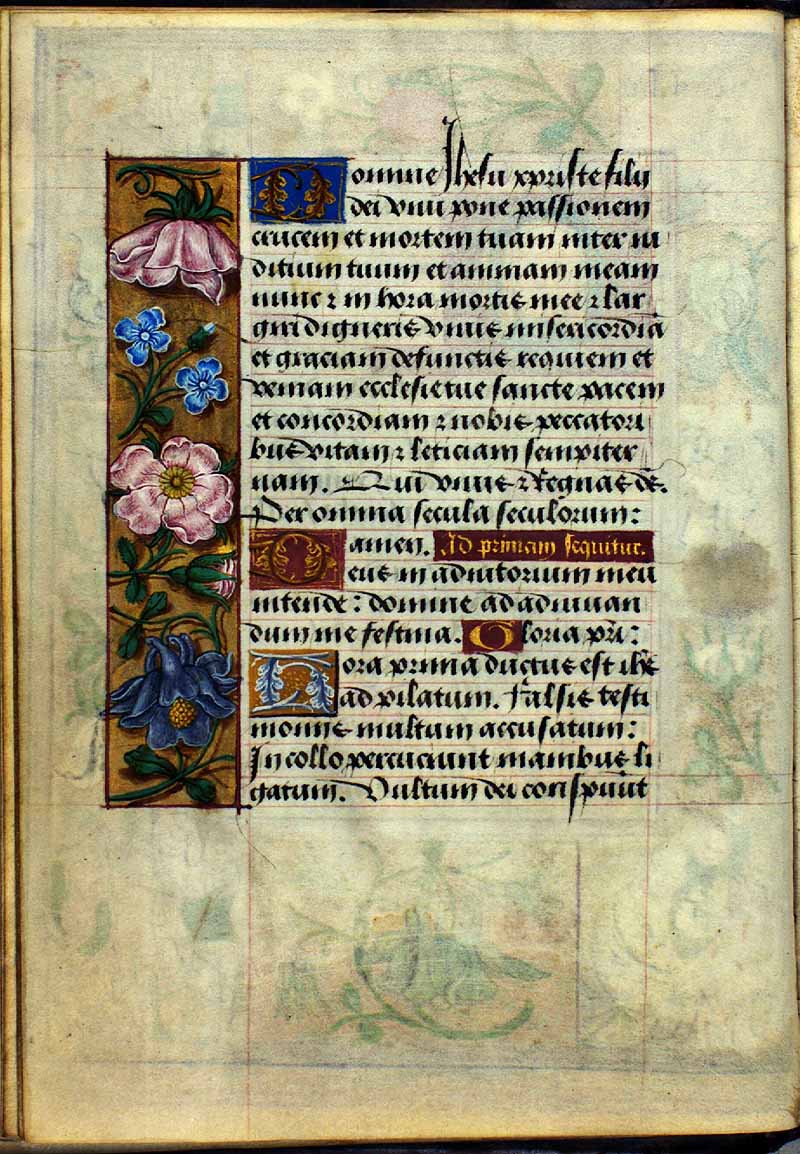 Domine Jhesu xpriste fily
dei viui pone passionem
crucem et mortem tuam inter iu
ditium tuum et animam meam
nunc ⁊ in hora mortis mee ⁊ lar
giri digneris viuis misericordiā
et graciam defunctis requiem et
veniam ecclesie tue sancte pacem
et concordiam ⁊ nobis peccatori
bus vitam ⁊ leticiam sempiter
nam. Qui viuis ⁊ Regnas de.
Per omnia secula seculorum:
amen. Ad primam sequitur.
Deus in adiutorium meū
intende: domine ad adiuuan
dum me festina. Gloria pri:
Hora prima ductus est ihs
ad pilatum. Falsis testi
moniis multum accusatum:
In collo percuciunt manibus li
gatum. Vultum dei conspuūt